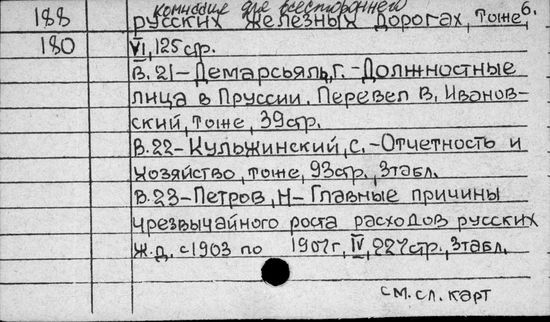 Комиссие для всестороннего
188 русских железных дорогах, тоже 6.
180 VI, 125 стр.
В. 21 - Демарсьяль, Г. - Должностные
лица в Пруссии. Перевел В. Иванов-
ский, тоже, 39 стр.
В. 22 - Кульжинский, С. - Отчетность и
хозяйство, тоже, 93 стр., 3 табл.
В. 23 - Петров, Н - Главные причины
чрезвычайного роста расходов русских
ж.д. с 1903 по 1907 г, IV, 227 стр., 3 табл.
см. сл. карт